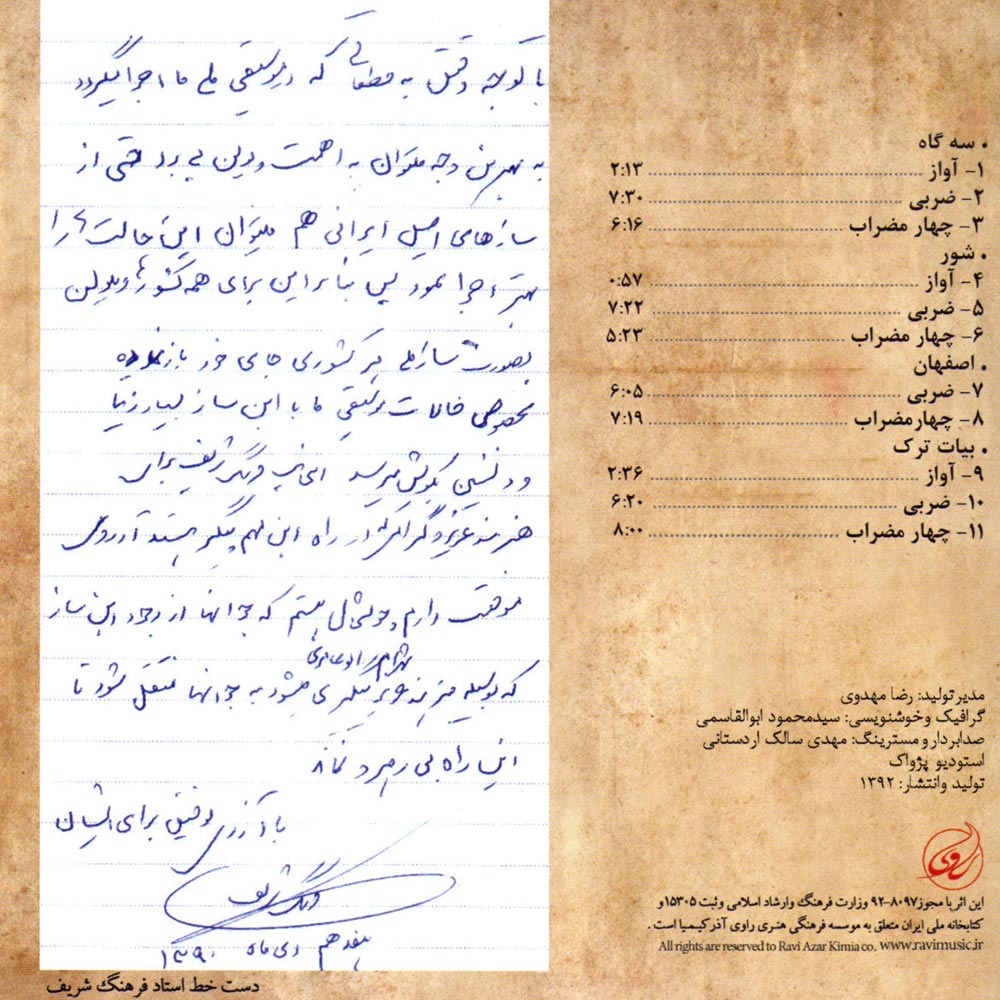 با توجه و دقت به مطالبی که در موسیقی ملی ما اجرا میگردد
به بهترین وجه میتوان به اهمیت ویلن پی برد حتی از
سازهای اصیل ایرانی هم میتوان این حالت ها را
بهتر اجرا نمود پس بنابراین برای همه کشورها ویلن
بصورت ساز ملی هر کشوری جای خود باز نموده
بخصوص حالات موسیقی ما با این ساز بسیار زیبا
و دلنشین بگوش میرسد اینجانب فرهنگ شریف برای
هنرمند عزیز و گرامی که در راه این مهم پیگیر هستند آرزوی
موفقیت دارم و خوشحال هستم که جوانها از وجود این ساز
که بوسیله هنرمند عزیز پیگیری میشود به جوانها منتقل شود تا
این راه بی رهرو نماند
با آرزوی توفیق برای ایشان
فرهنگ شریف
هفدهم دی ماه ۱۳۹۰
دست خط استاد فرهنگ شریف
• سه گاه
۱- آواز ........ ۲:۱۳
۲- ضربی ........ ۷:۳۰
۳- چهار مضراب ........ ۶:۱۶
• شور
۴- آواز ........ ۰:۵۷
۵- ضربی ........ ۷:۲۲
۶- چهار مضراب ........ ۵:۲۳
• اصفهان
۷- ضربی ........ ۶:۰۵
۸- چهارمضراب ........ ۷:۱۹
• بیات ترک
۹- آواز ........ ۲:۳۶
۱۰- ضربی ........ ۶:۲۰
۱۱- چهار مضراب ........ ۸:۰۰
مدیر تولید: رضا مهدوی
گرافیک وخوشنویسی: سیدمحمود ابوالقاسمی
صدابردار و مسترینگ: مهدی سالک اردستانی
استودیو پژواک
تولید وانتشار: ۱۳۹۲
راوی
این اثر با مجوز ۸۰۹۷-۹۲ وزارت فرهنگ وارشاد اسلامی وثبت ۱۵۳۰۵و
کتابخانه ملی ایران متعلق به موسسه فرهنگی هنری راوی آذر کیمیا است .
All rights are reserved to Ravi Azar Kimia co. www.ravimusic.ir